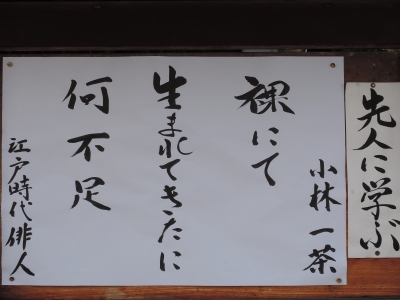 先人に学ぶ
小林一茶
裸にて
生まれてきたに
何不足
江戸時代俳人